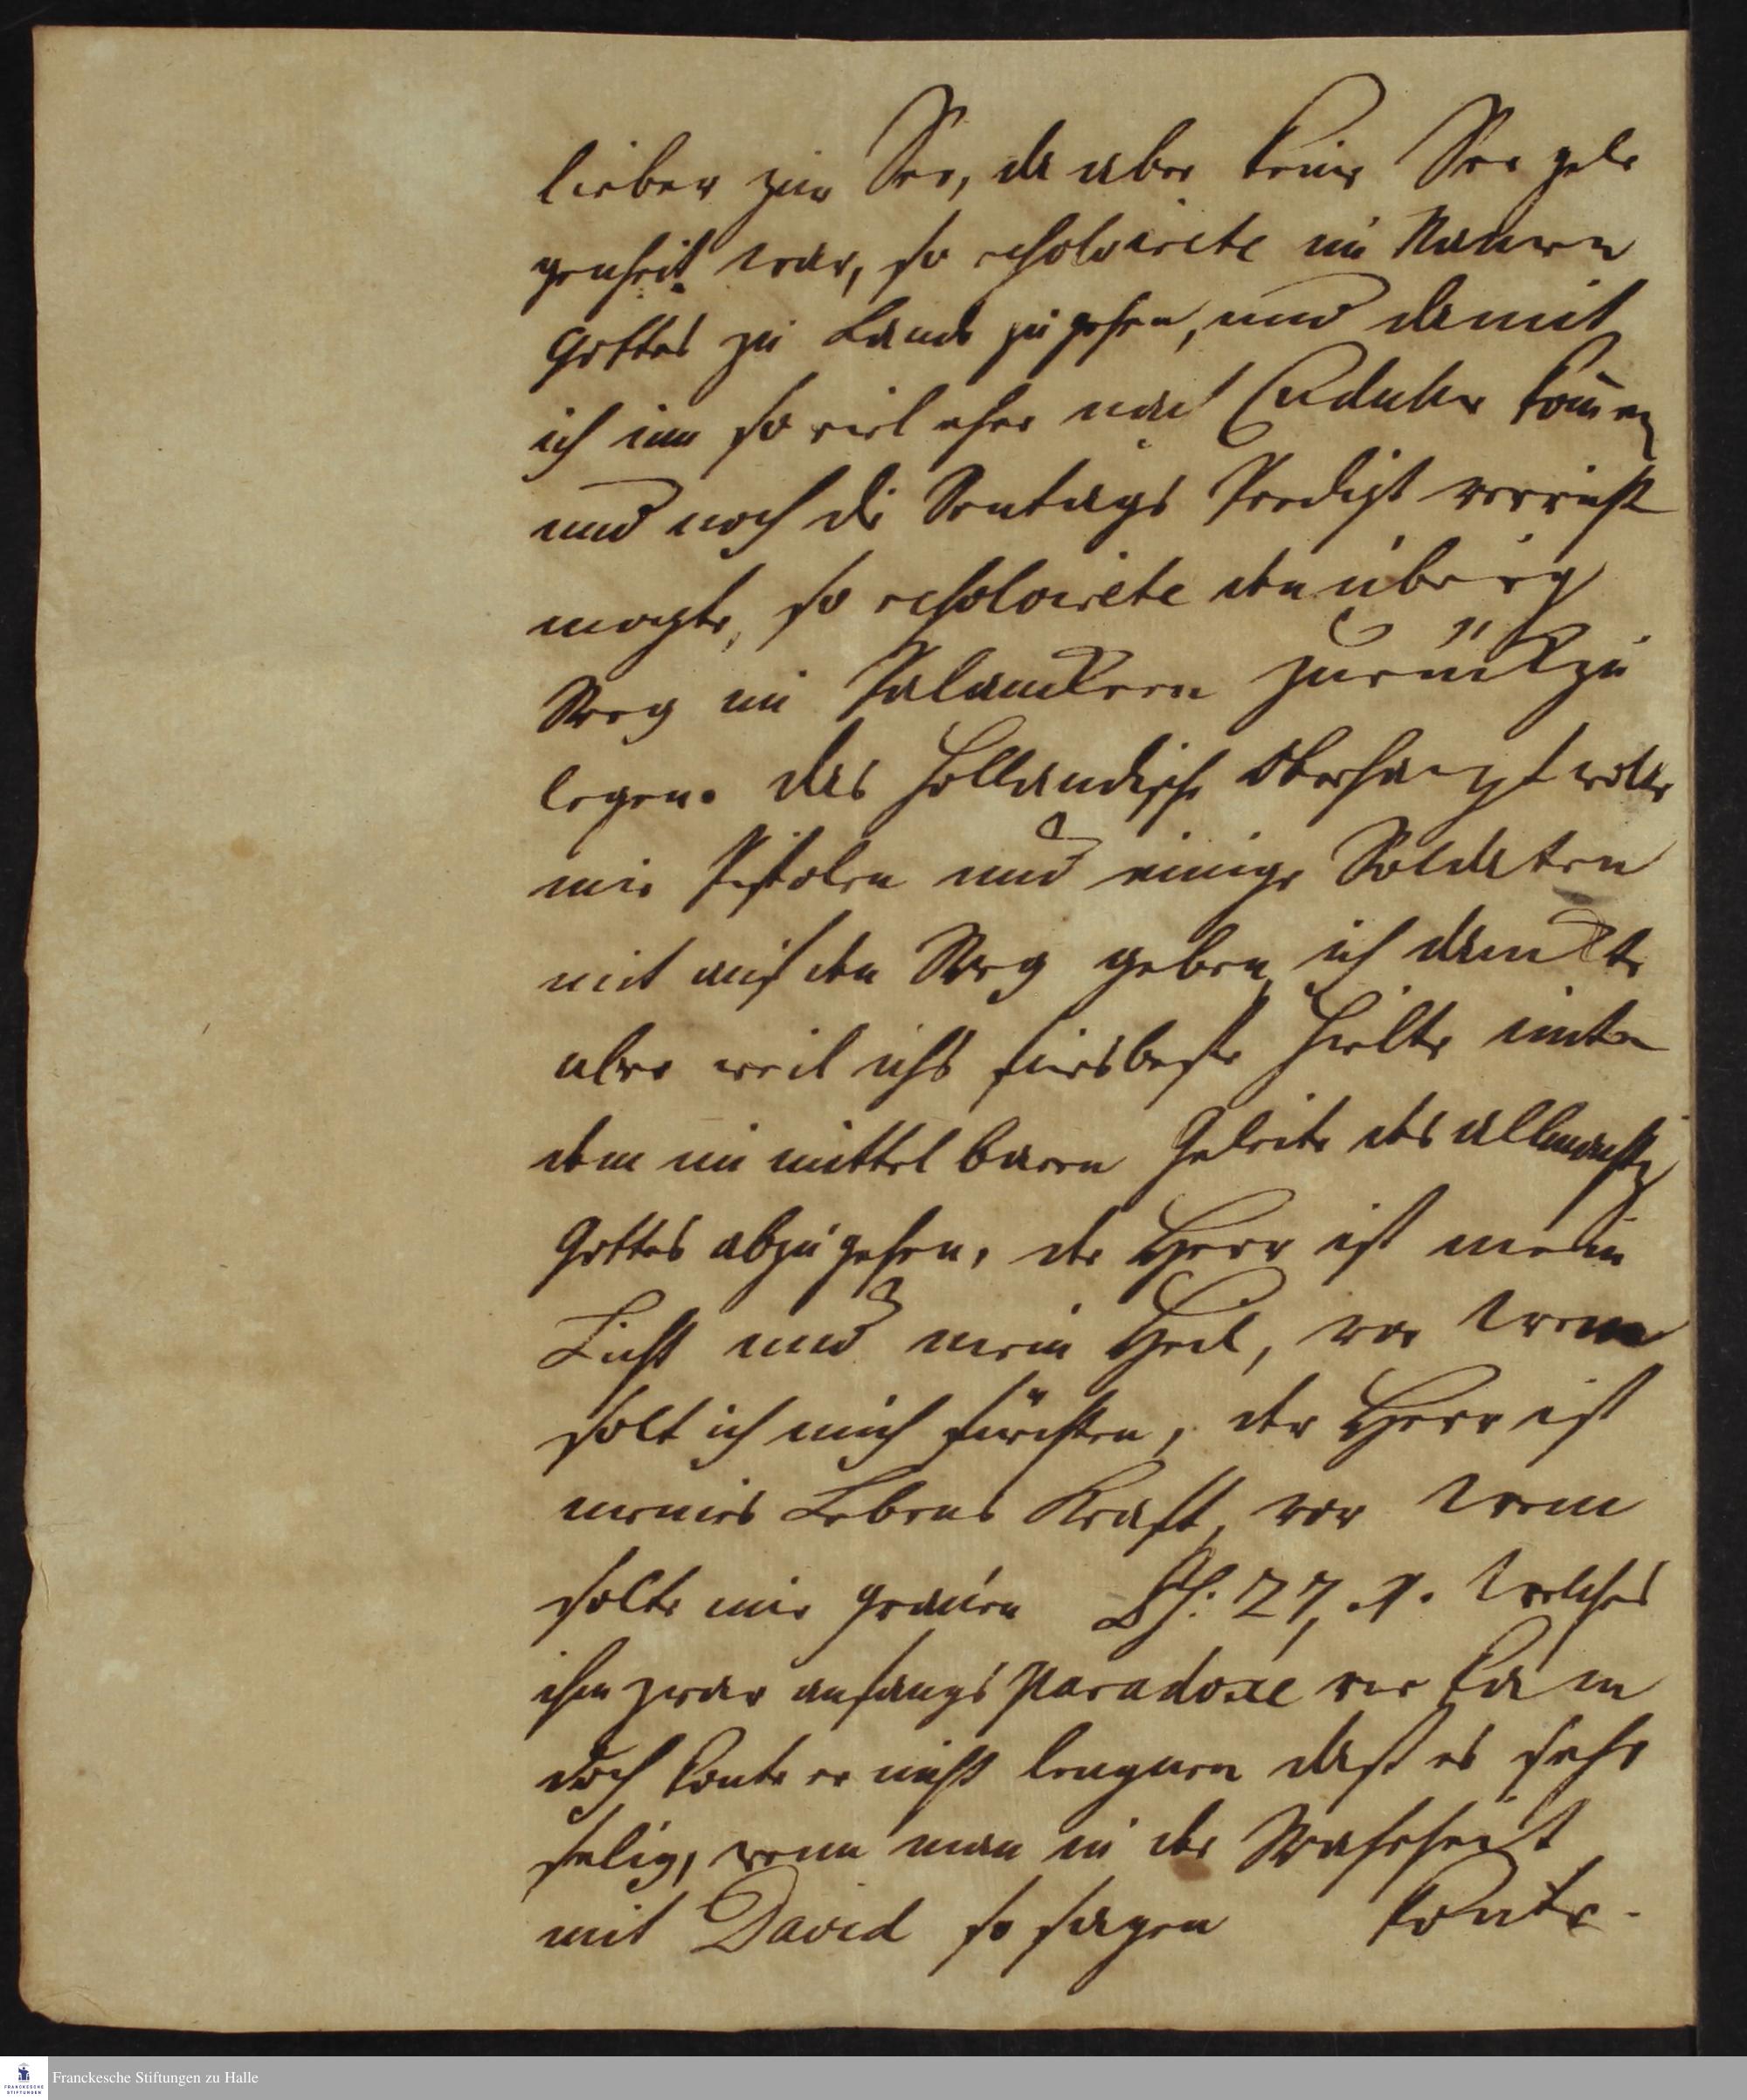 lieber zur See, da aber keine See gele
genheit war, so resolvirete im Nahmen
Gottes zu Lande zu gehen, und damit
ich um so viel eher nach Cudulur kom̅en
und noch die Sontags Predigt verricht
mogte, so resolvirete den übrig
Weg im Palanckeen zurück zu
legen. das Holländische Oberhaupt wolte
mir Pistolen und einige Soldaten
mit auf den Weg geben, ich danckte
aber weil ichs fürs beste hielte unter
dem unmittelbaren Geleite des allmächtg
Gottes abzugehen, der Herr ist mein
Licht und mein Heil, vor wem
solt ich mich fürchten, der Herr ist
meines Lebens Krafft, vor wem
solte mir grauen Ps: 27, 1. welches
ihm zwar anfangs paradoxe vor kam
doch konte er nicht leugnen dast es sehr
selig, wenn man in der Wahrheit
mit David so sagen konte.
Franckesche Stiftungen zu Halle